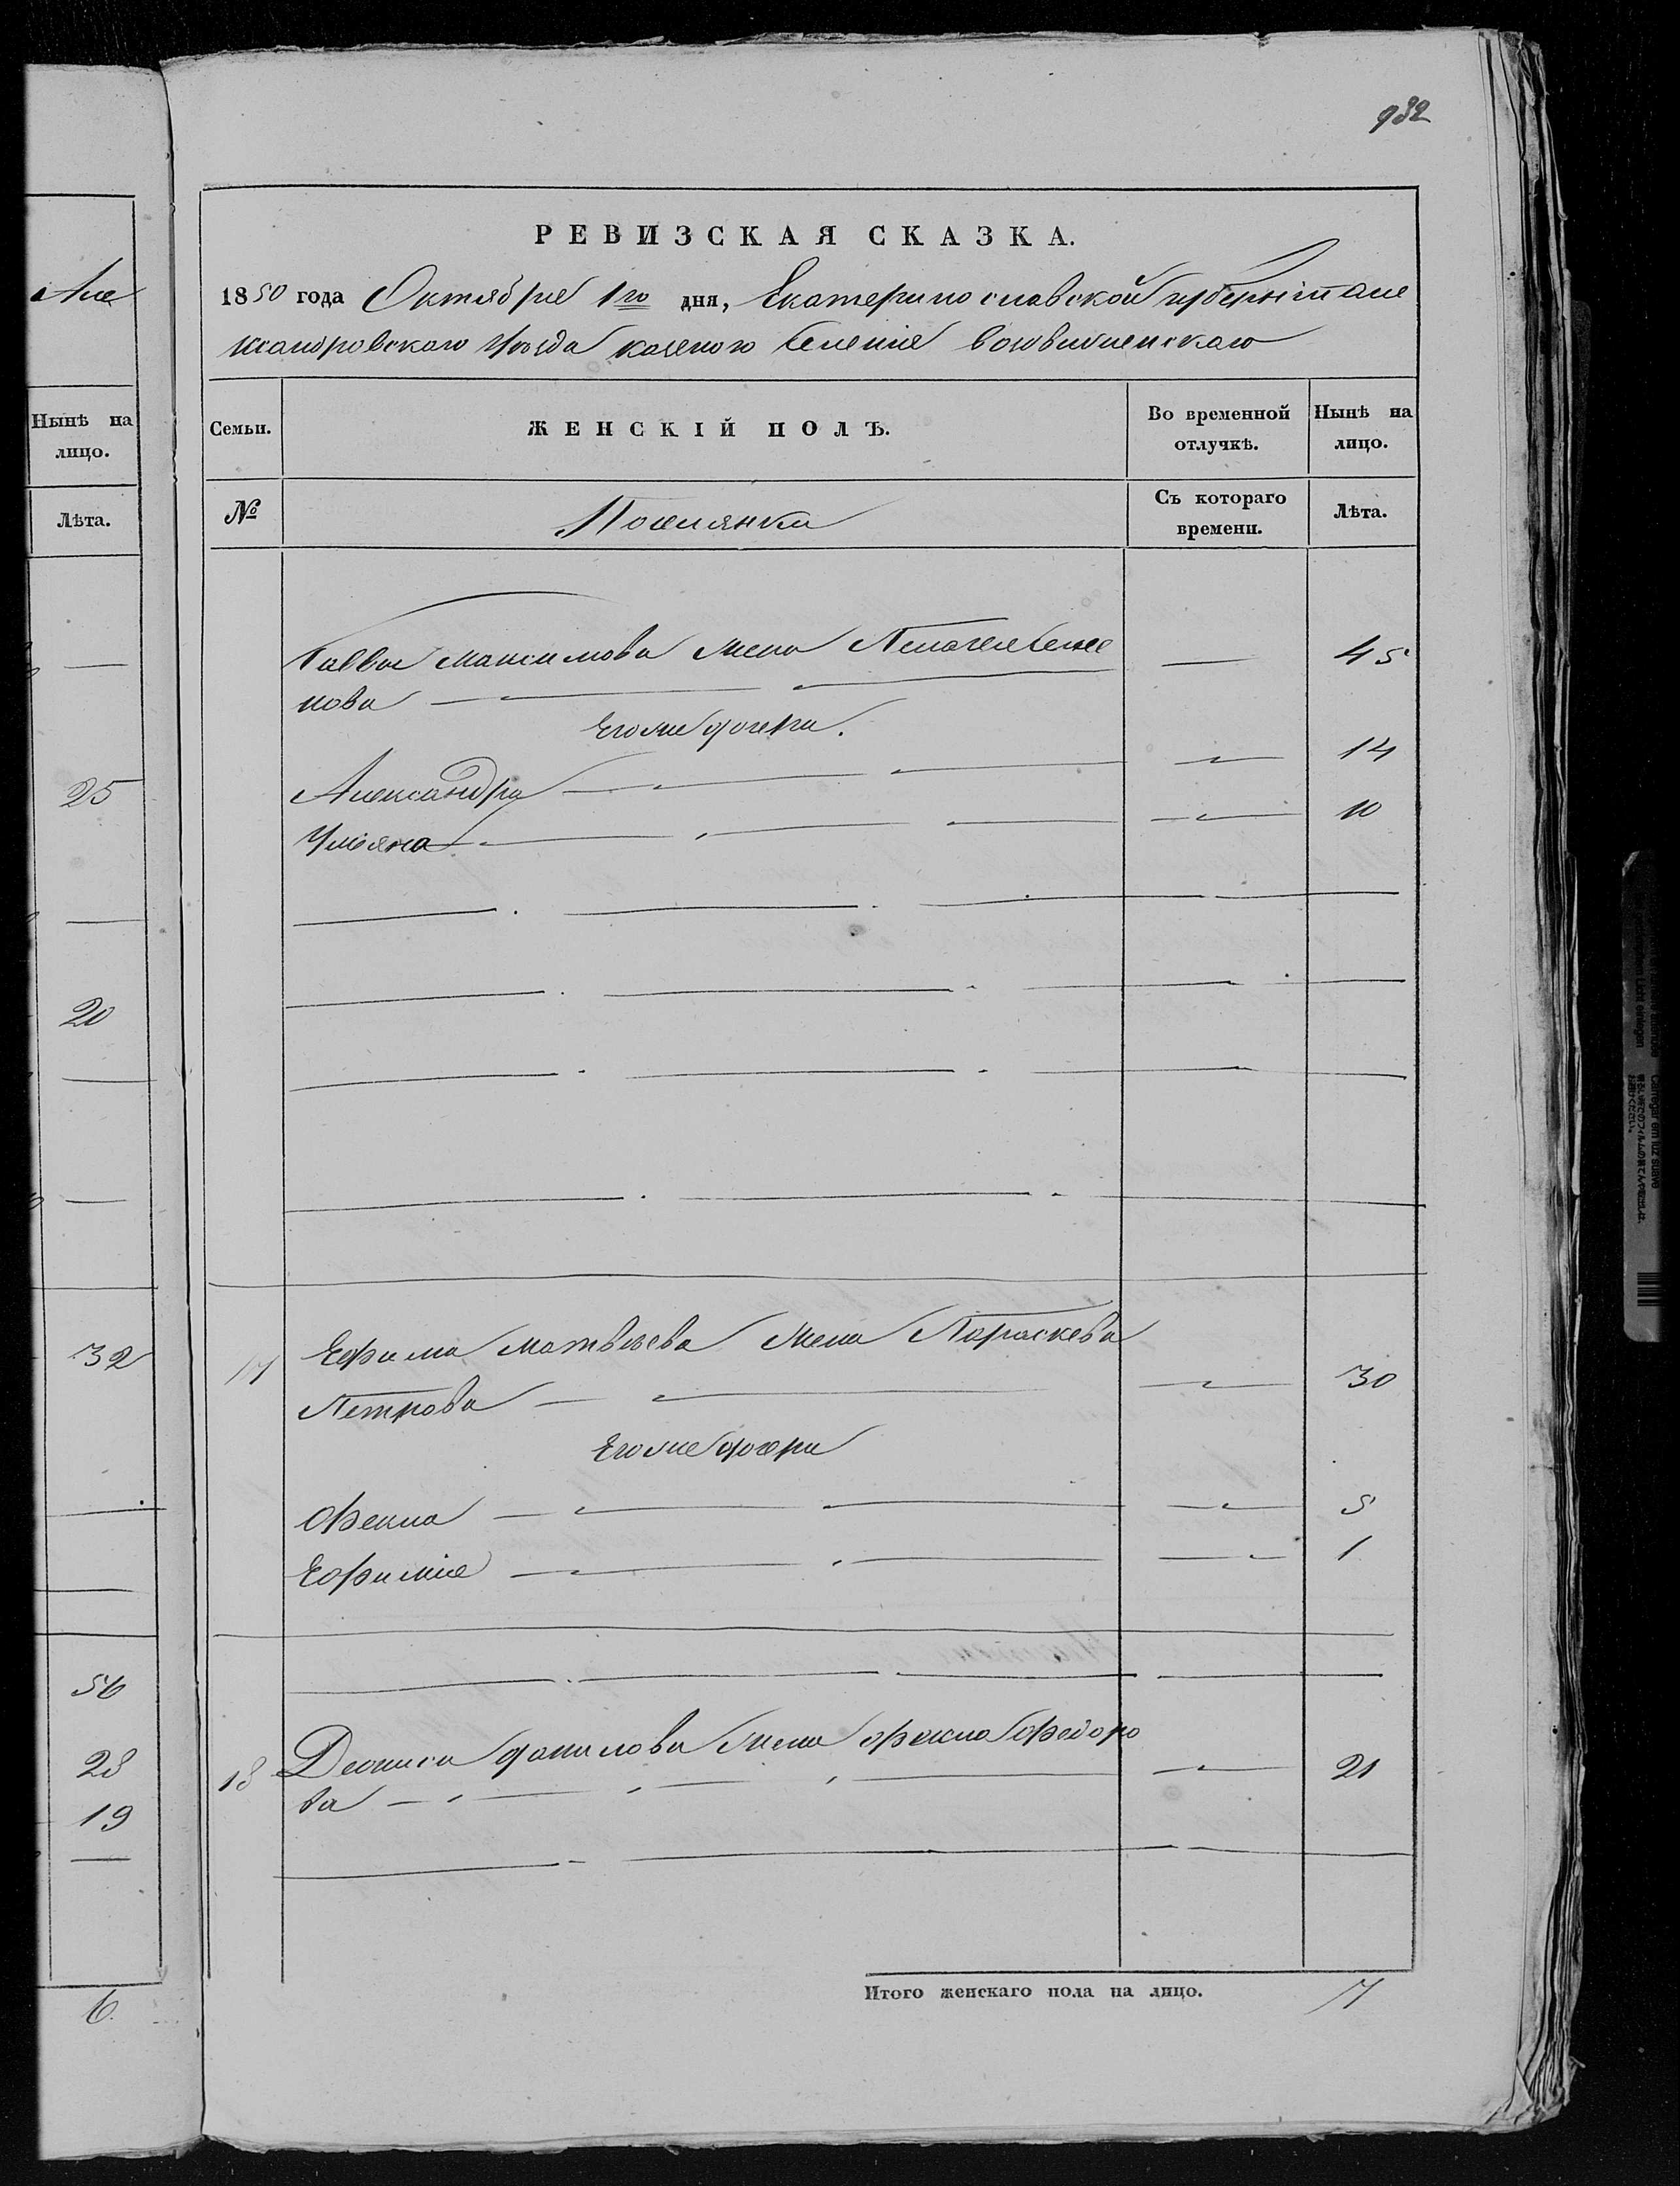 932
РЕВИЗСКАЯ СКАЗКА.
Але
1850 года Октября 1го дня, Екатеринославской губерніи але
ксандровскаго уѣзда казеного селенія воздвиженскаго
Нынѣ на лицо.
Семьи.
ЖЕНСКІЙ ПОЛЪ.
Во временной отлучкѣ.
Нынѣ на лицо.
Лѣта.
№
Поселянки
Съ котораго времени.
Лѣта.
Саввы максимова жена Пелагея Семе
нова 45
Его же дочери.
Александра 14
Ульяна 10
25
20
17 Ефима матвѣева жена Параскева
Петрова 30
32
Его же дочери
Фекла 5
Ефимія 1
56
28
19
18 Дениса данилова жена фекла федоро
ва 21
Итого женскаго пола на лицо. 7
6